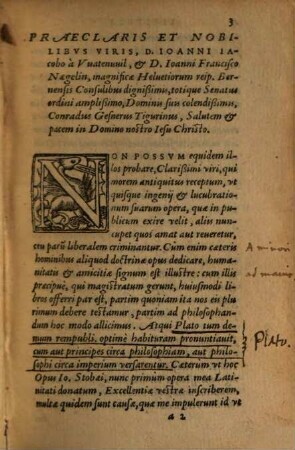 3
PRAECLARIS ET NOBI-
LIBVS VIRIS, D. IOANNI IA-
cobo à Vuatenuuil, & D. Ioanni Francisco
Nægelin, magnificæ Heluetiorum reip. Ber-
nensis Consulibus dignißimis, totique Senatus
ordini amplißimo, Dominis suis colendißimis,
Conradus Gesnerus Tigurinus, Salutem &
pacem in Domino nostro Iesu Christo.
NON POSSVM equidem il-
los probare, Clarißimi viri, qui
morem antiquitus receptum, vt
quisque ingenij & lucubratio-
num suarum opera, quæ in pu-
blicum exire velit, alijs nun-
cupet quos amat aut ueneretur,
ceu parũ liberalem criminantur. Cum enim cæteris
hominibus aliquod doctrinæ opus dedicare, huma-
nitatis & amicitiæ signum est illustre: cum illis
præcipuè, qui magistratum gerunt, huiusmodi li-
bros offerri par est, partim quoniam ita nos eis plu-
rimum debere testamur, partim ad philosophan-
dum hoc modo allicimus. Atqui Plato tum de-
mum rempubli. optimè habituram pronuntiauit,
cum aut principes circa philosophiam, aut philo-
sophi circa imperium versarentur. Cæterum vt hoc
Opus Io. Stobæi, nunc primum opera mea Lati-
nitati donatum, Excellentiæ vestræ inscriberem,
multæ quidem sunt causæ, quæ me impulerunt id vt
a 2
A minori
ad maius
Plato.